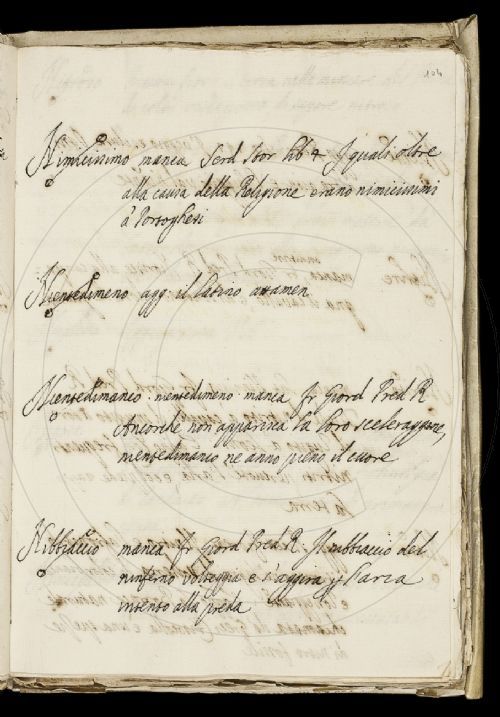 104
Nimicissimo manca Serd Stor lib 4 I quali oltre
alla causa della Religione erano nimicissimi
à Portoghesi
Nientedimeno agg: il latino attamen
Nientedimanco. nientedimeno manca Fr Giord Pred R
Ancorche non apparisca la loro sceleraggine,
nientedimanco ne anno pieno il cuore
Nibbiaccio manca Fr Giord Pred R. Il nibbiaccio del
ninferno volteggia e s'aggira per l'aria
intento alla preda